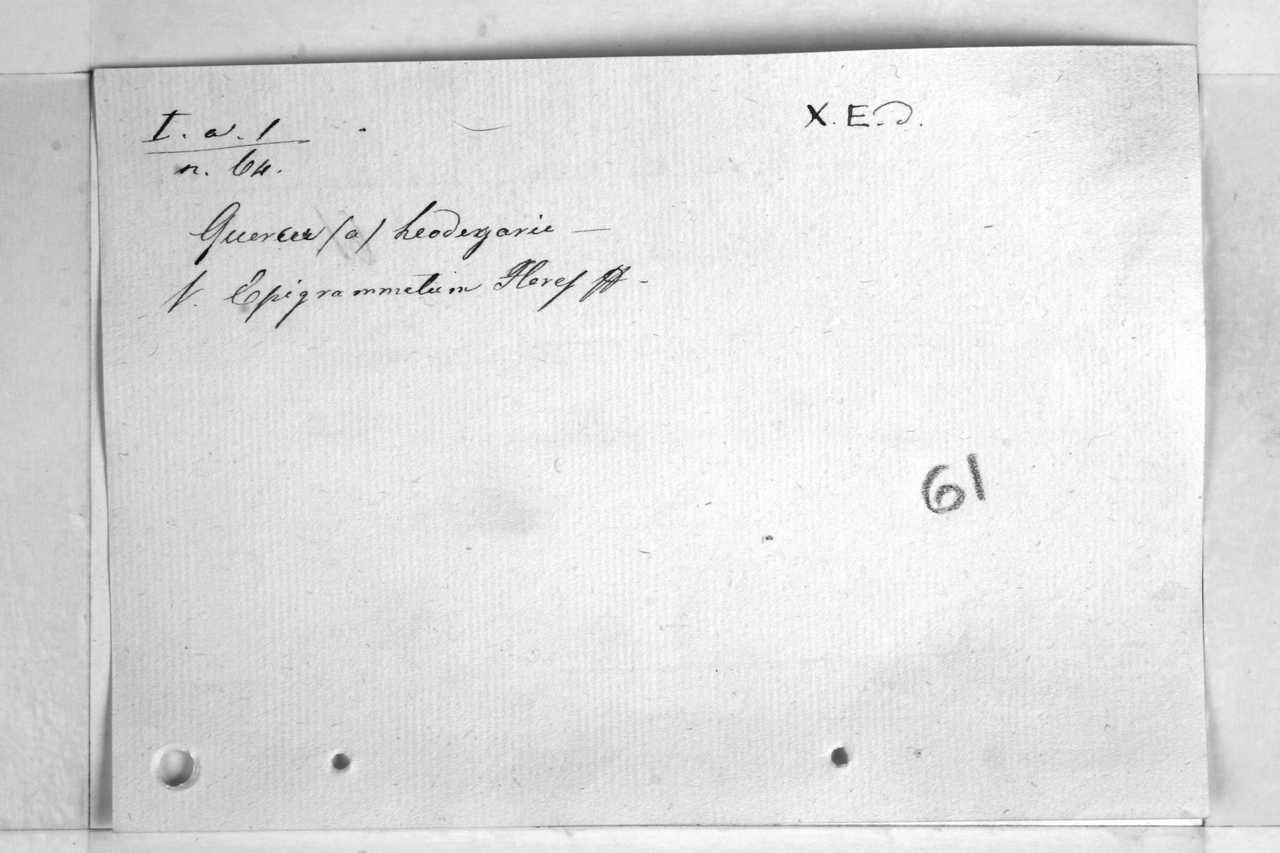 I. a. 1
n. 64.
X. E. d.
Quercu (a) Leodegario —
v. Epigrammatum Flores
61